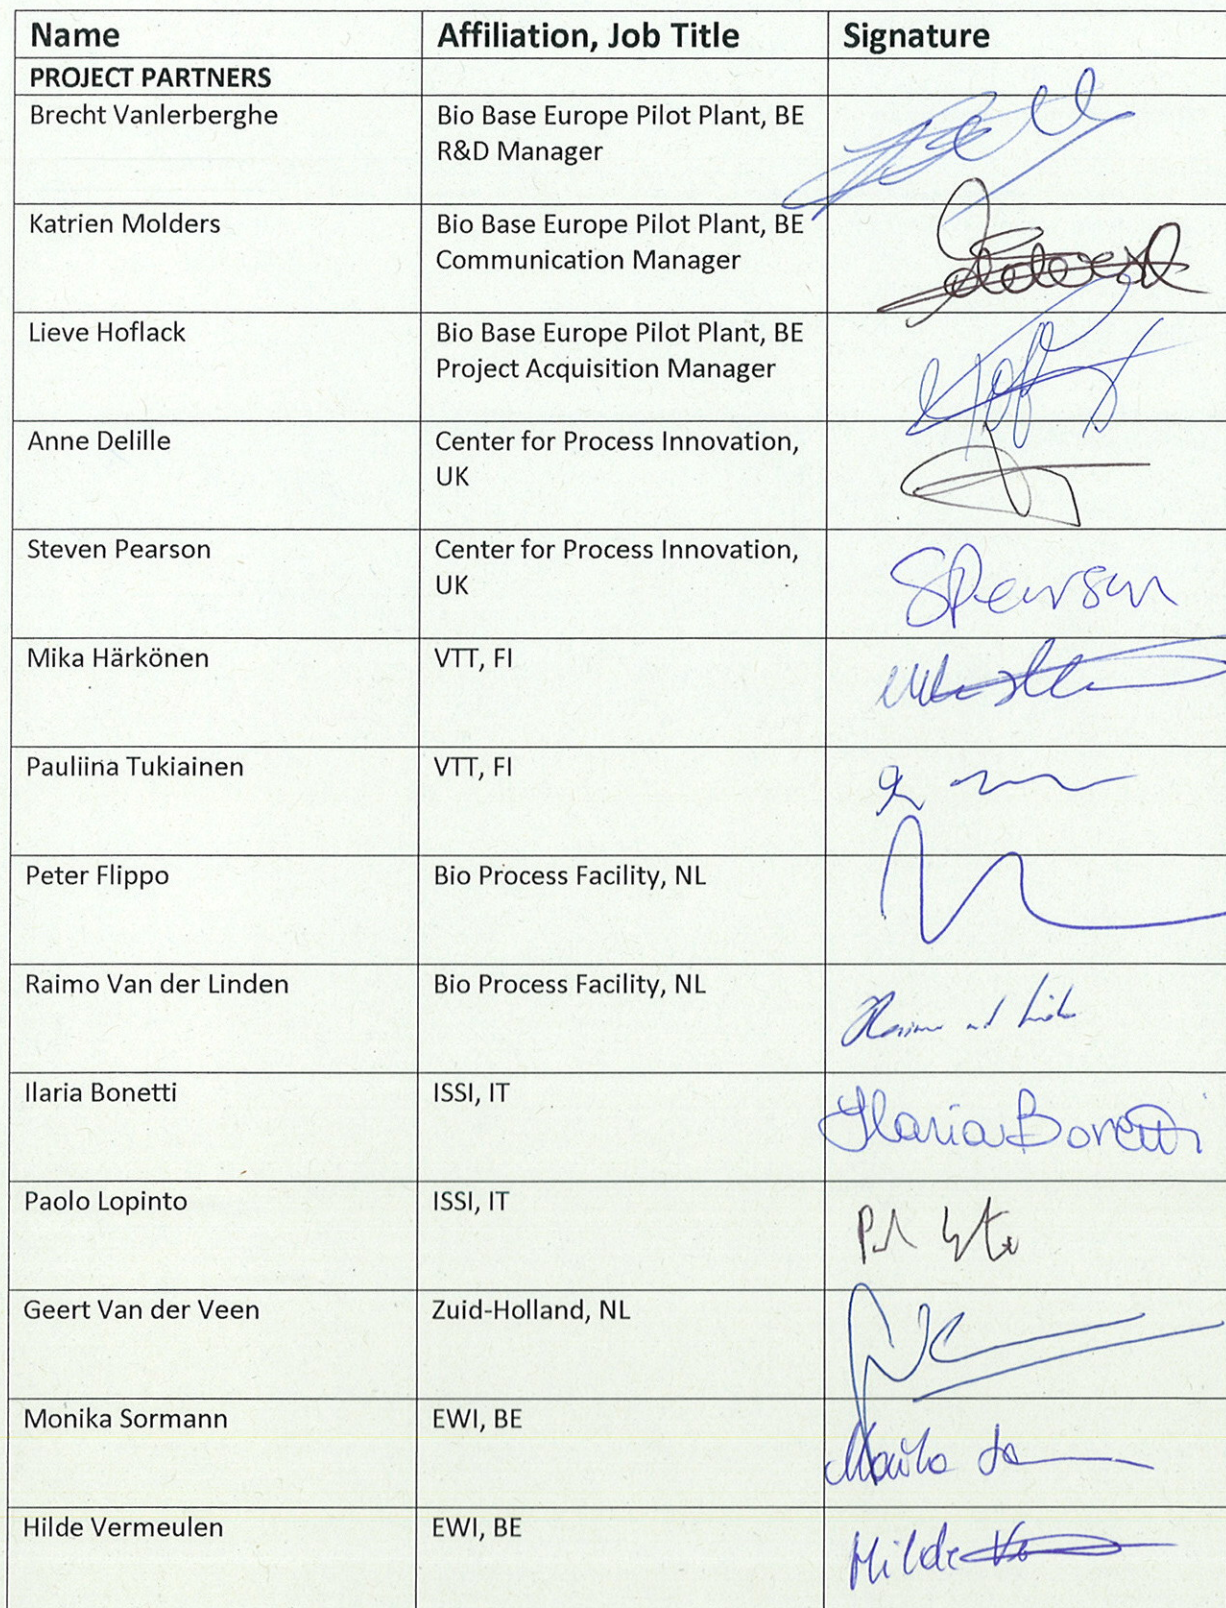 Name Affiliation, Job Title Signature
PROJECT PARTNERS
Brecht Vanlerberghe Bio Base Europe Pilot Plant, BE
R&D Manager
Katrien Molders Bio Base Europe Pilot Plant, BE
Communication Manager
Lieve Hoflack Bio Base Europe Pilot Plant, BE
Project Acquisition Manager
Anne Delille Center for Process Innovation,
UK
Steven Pearson Center for Process Innovation,
UK
SPearson
Mika Härkönen VTT, FI
Pauliina Tukiainen VTT, FI
Peter Flippo Bio Process Facility, NL
Raimo Van der Linden Bio Process Facility, NL
Ilaria Bonetti ISSI, IT
Ilaria Bonetti
Paolo Lopinto ISSI, IT
Geert Van der Veen Zuid-Holland, NL
Monika Sormann EWI, BE
Hilde Vermeulen EWI, BE
Hilde